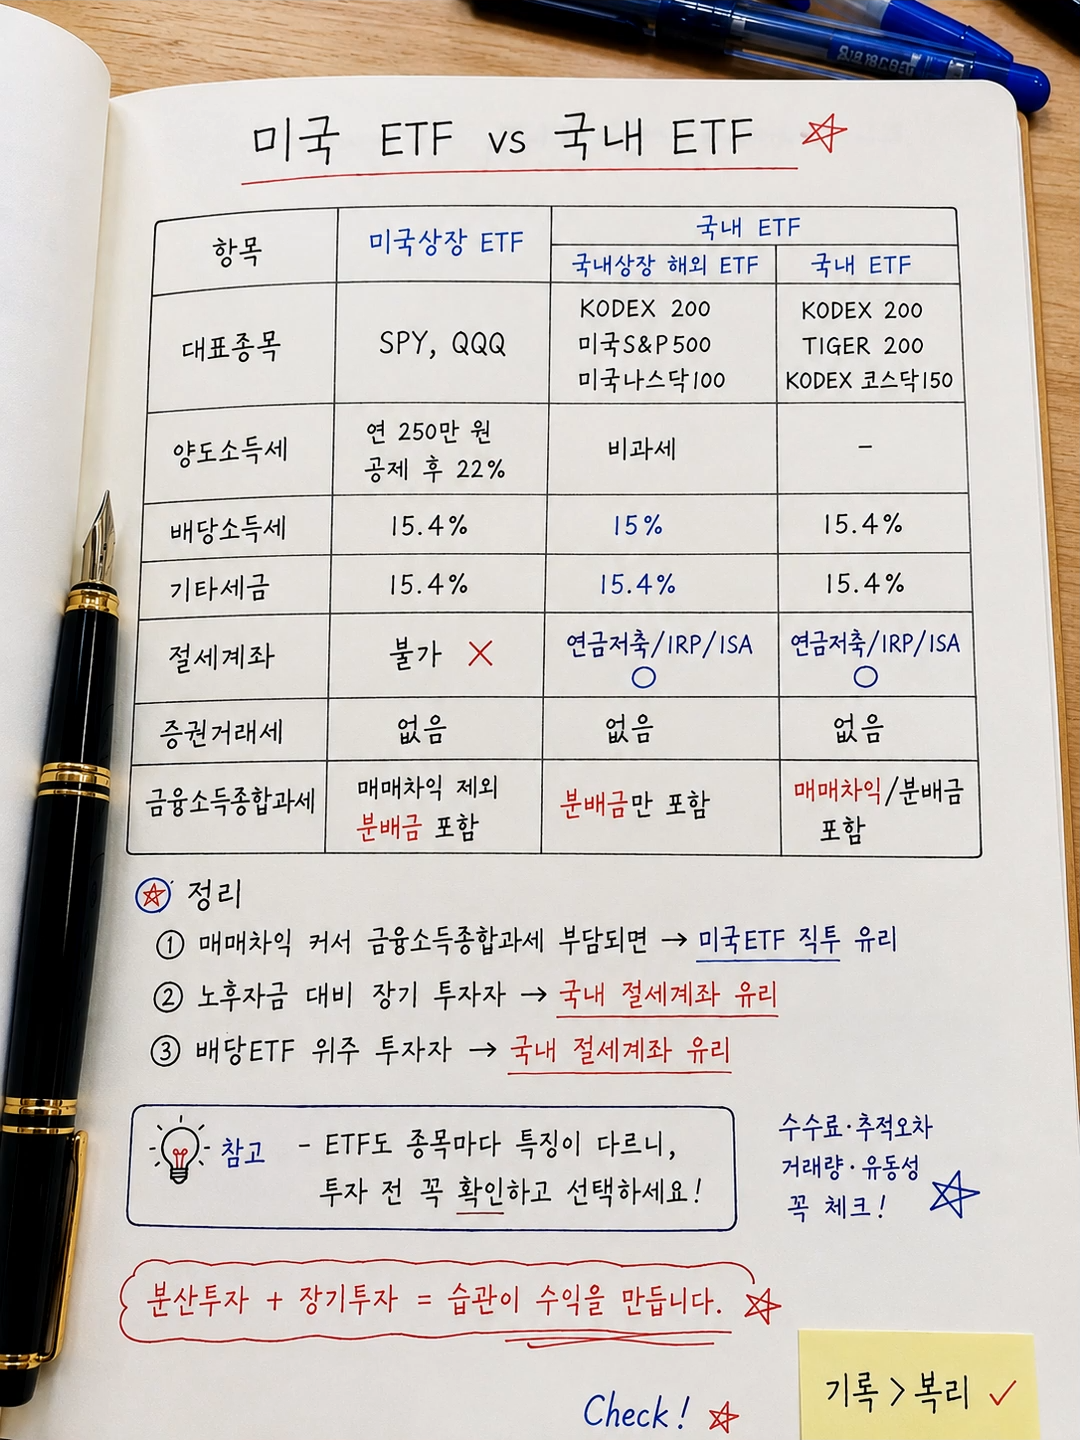 미국 ETF vs 국내 ETF
항목
미국상장 ETF
국내 ETF
국내상장 해외 ETF
국내 ETF
대표종목
SPY, QQQ
KODEX 200
미국S&P500
미국나스닥100
KODEX 200
TIGER 200
KODEX 코스닥150
양도소득세
연 250만 원
공제 후 22%
비과세
–
배당소득세
15.4%
15%
15.4%
기타세금
15.4%
15.4%
15.4%
절세계좌
불가 ✕
연금저축/IRP/ISA
○
연금저축/IRP/ISA
○
증권거래세
없음
없음
없음
금융소득종합과세
매매차익 제외
분배금 포함
분배금만 포함
매매차익/분배금
포함
정리
① 매매차익 커서 금융소득종합과세 부담되면 → 미국ETF 직투 유리
② 노후자금 대비 장기 투자자 → 국내 절세계좌 유리
③ 배당ETF 위주 투자자 → 국내 절세계좌 유리
참고 - ETF도 종목마다 특징이 다르니,
투자 전 꼭 확인하고 선택하세요!
수수료·추적오차
거래량·유동성
꼭 체크!
분산투자 + 장기투자 = 습관이 수익을 만듭니다.
Check!
기록 > 복리 ✓